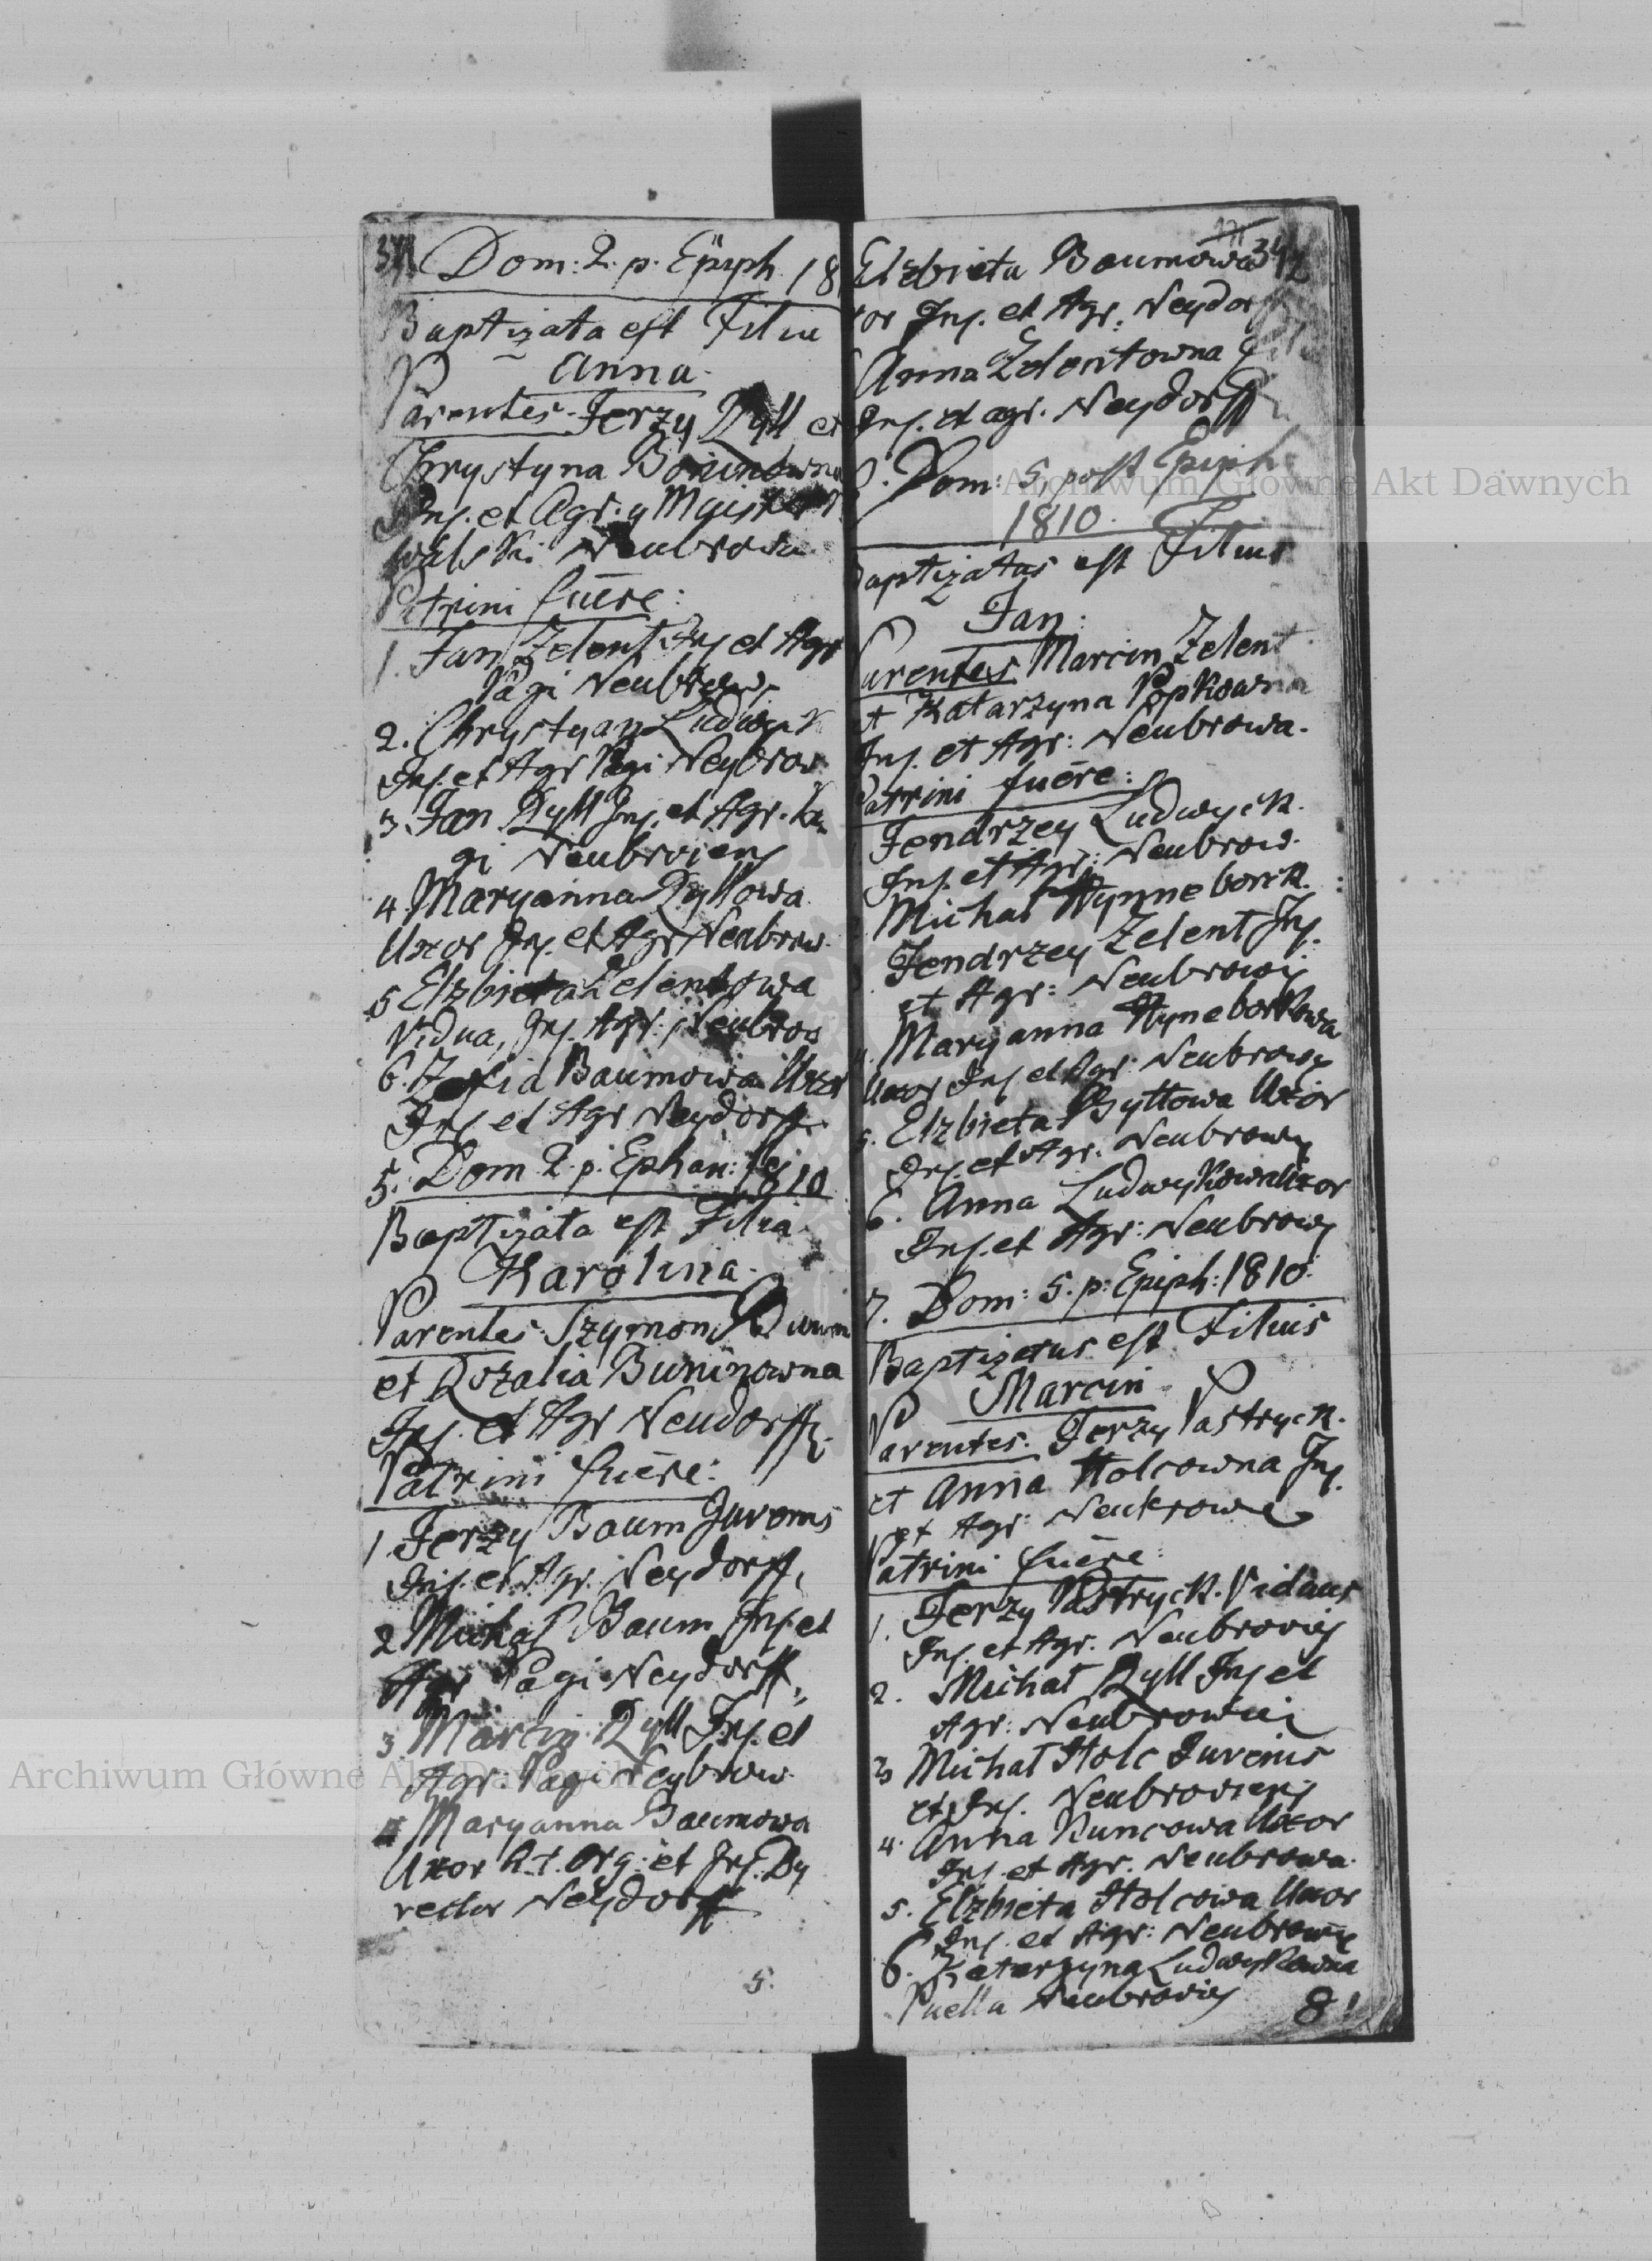 341 Dom: 2. p. Epiph. 18
Baptizata est Filia
Anna.
Parentes. Jerzy Ryll et
Chrystyna
Inq. et Agr. y
Neubrowa
Patrini fuēre:
1. Jan Zelent Inq et Agr
Pagi Neubrow
2. Chrystyan Ludwyk
Inq. et Agr Pagi Neybrow.
3. Jan Ryll Inq. et Agr. Pa
gi Neubroviens
4. Maryanna Ryllowa
Uxor Inq. et Agr Neubrow.
5 Elzbieta Zelentowa
Vidua, Inq. Agr. Neubrow
6. Zofia Baumowa Uxor
Inq et Agr Neydorff.
5. Dom 2. p. Ephan: 1810
Baptizata est Filia
Karolina.
Parentes: Szymon
et Rozalia Buninowna
Inq. et Agr Neudorff.
Patrini fuēre:
1 Jerzy Baum Juvenis
Inq. et Agr. Neydorff,
2 Michał Baum Inq et
Agr Pagi Neydorff,
3 Marcin Ryll Inq. et
Agr. Pagi Neybrow.
4 Maryanna Baumowa
Uxor Org: et Inq. Dy
rector Neydorff
5.
Elzbieta Baumowa 342
xor Inq. et Agr. Neydorff
Anna Zelentowna
Inq. et agr. Neydorff
6. Dom: 5. post Epiph
1810.
Baptizatus est Filius
Jan.
Parentes Marcin Zelent
et Katarzyna Popkowna
Inq. et Agr: Neubrowa.
Patrini fuēre:
Jendrzey Ludwyck.
Inq. et Agr: Neubrow.
Michał Hynneborck.
Jendrzey Zelent Inq.
et Agr: Neubrowy
4. Maryanna Hyneborkowa
Uxor Inq et Agr: Neubrowy
5. Elzbieta Ryllowa Uxor
Inq. et Agr: Neubrowy
6. Anna Ludwykowa Uxor
Inq. et Agr: Neubrowy
7. Dom: 5. p: Epiph: 1810.
Baptizatus est Filius
Marcin
Parentes. Jerzy Pastryck.
et Anna Holcowna Inq.
et Agr: Neubrowa
Patrini fuēre:
1. Jerzy Pastryck. Viduus
Inq. et Agr. Neubrovies
2. Michał Ryll Inq et
Agr: Neubrowiei
3 Michał Holc Juvenis
et Inq. Neubroviens
4. Anna Kuncowa Uxor
Inq. et Agr. Neubrowa.
5. Elzbieta Holcowa Uxor
Inq. et Agr: Neubrowy
6. Katarzyna Ludwykowna
Puella Neubrovies 8!
Archiwum Główne Akt Dawnych
Archiwum Główne Akt Dawnych